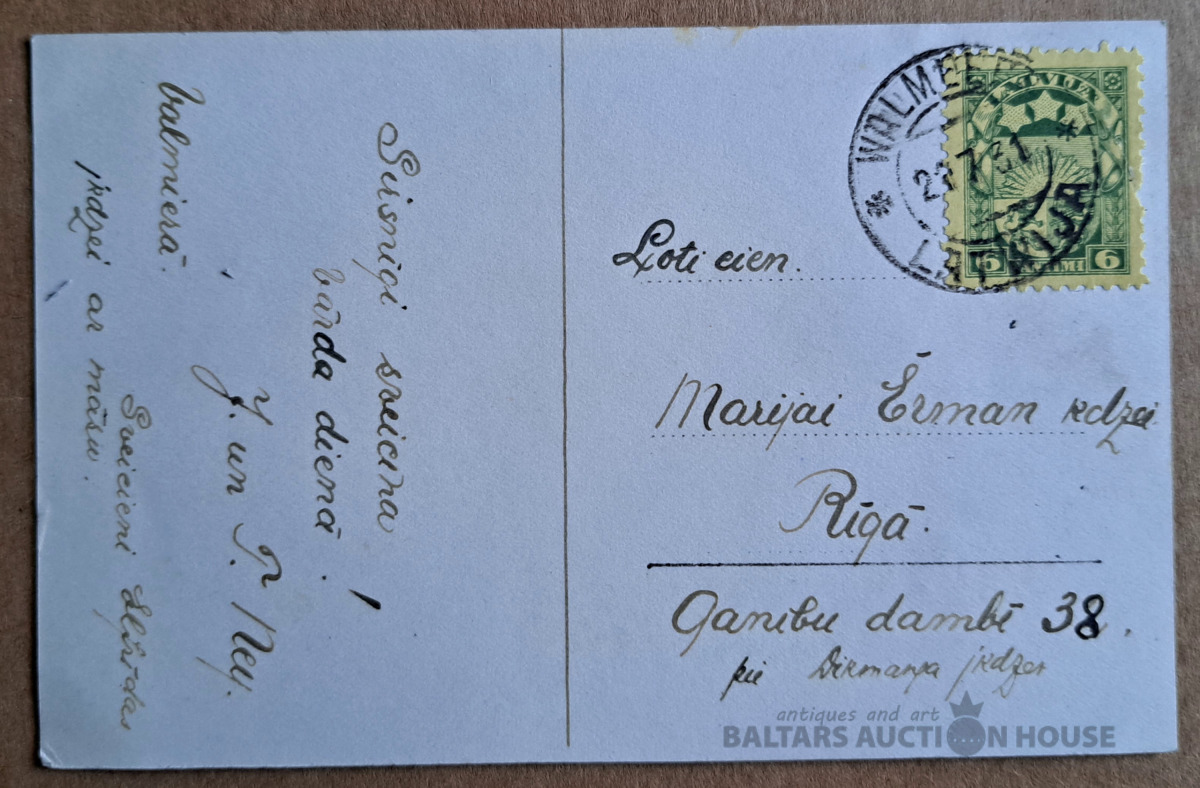 Sirsnīgi sveicina
vārda dienā!
J. un P. Ney.
Valmierā.
Sveicieni
jkdzei ar māsu.
Ļoti cien.
Marijai Ērman kdzei
Rīgā.
Ganību dambī 38.
pie jkdzes
WALMEERA
7 31
LATVIJA
LATVIJA
6 6
antiques and art
BALTARS AUCTION HOUSE